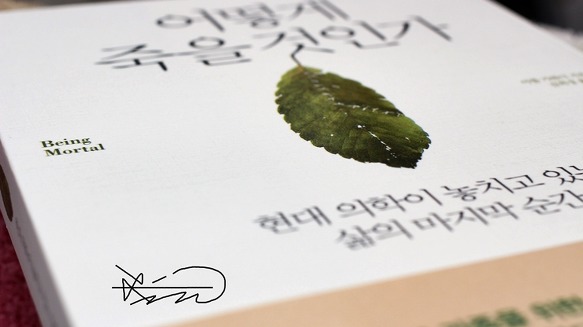 어떻게
죽을 것인가
Being
Mortal
현대 의학이 놓치고 있는
삶의 마지막 순간